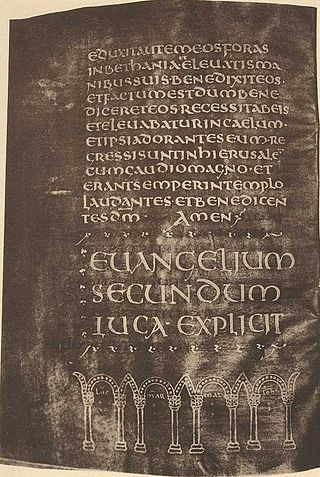 EDUXITAUTEMEOSFORAS
INBETHANIA·ELEUATISMA
NIBUSSUIS·BENEDIXITEOS·
ETFACTUMESTDUMBENE
DICERETEOS·RECESSITABEIS
ETELEUABATURINCAELUM·
ETIPSIADORANTESEUM·RE
GRESSISUNTINHIERUSALE
CUMGAUDIOMAGNO·ET
ERANTSEMPERINTEMPLO
LAUDANTES·ETBENEDICEN
TESDM· AMEN·
EUANGELIUM
SECUNDUM
LUCA·EXPLICIT
LUC MAR MAT